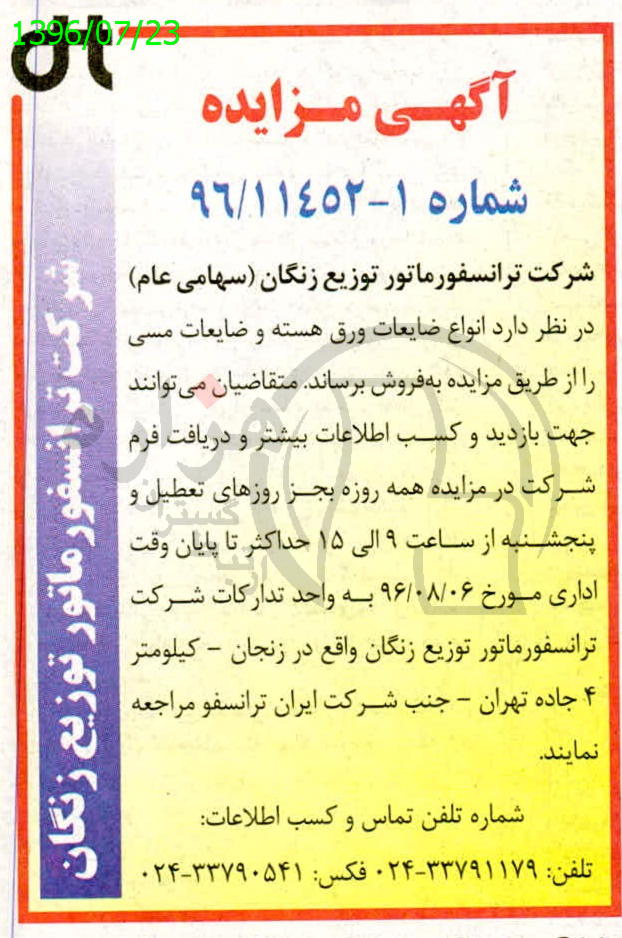 1396/07/23
آگهی مزایده
شماره ۱-۹۶/۱۱۴۵۲
شرکت ترانسفورماتور توزیع زنگان (سهامی عام)
در نظر دارد انواع ضایعات ورق هسته و ضایعات مسی
را از طریق مزایده به‌فروش برساند. متقاضیان می‌توانند
جهت بازدید و کسب اطلاعات بیشتر و دریافت فرم
شرکت در مزایده همه روزه بجز روزهای تعطیل و
پنجشنبه از ساعت ۹ الی ۱۵ حداکثر تا پایان وقت
اداری مورخ ۹۶/۰۸/۰۶ به واحد تدارکات شرکت
ترانسفورماتور توزیع زنگان واقع در زنجان – کیلومتر
۴ جاده تهران – جنب شرکت ایران ترانسفو مراجعه
نمایند.
شماره تلفن تماس و کسب اطلاعات:
تلفن: ۳۳۷۹۱۱۷۹-۰۲۴ فکس: ۳۳۷۹۰۵۴۱-۰۲۴
شرکت ترانسفورماتور توزیع زنگان
هزاره
گستران